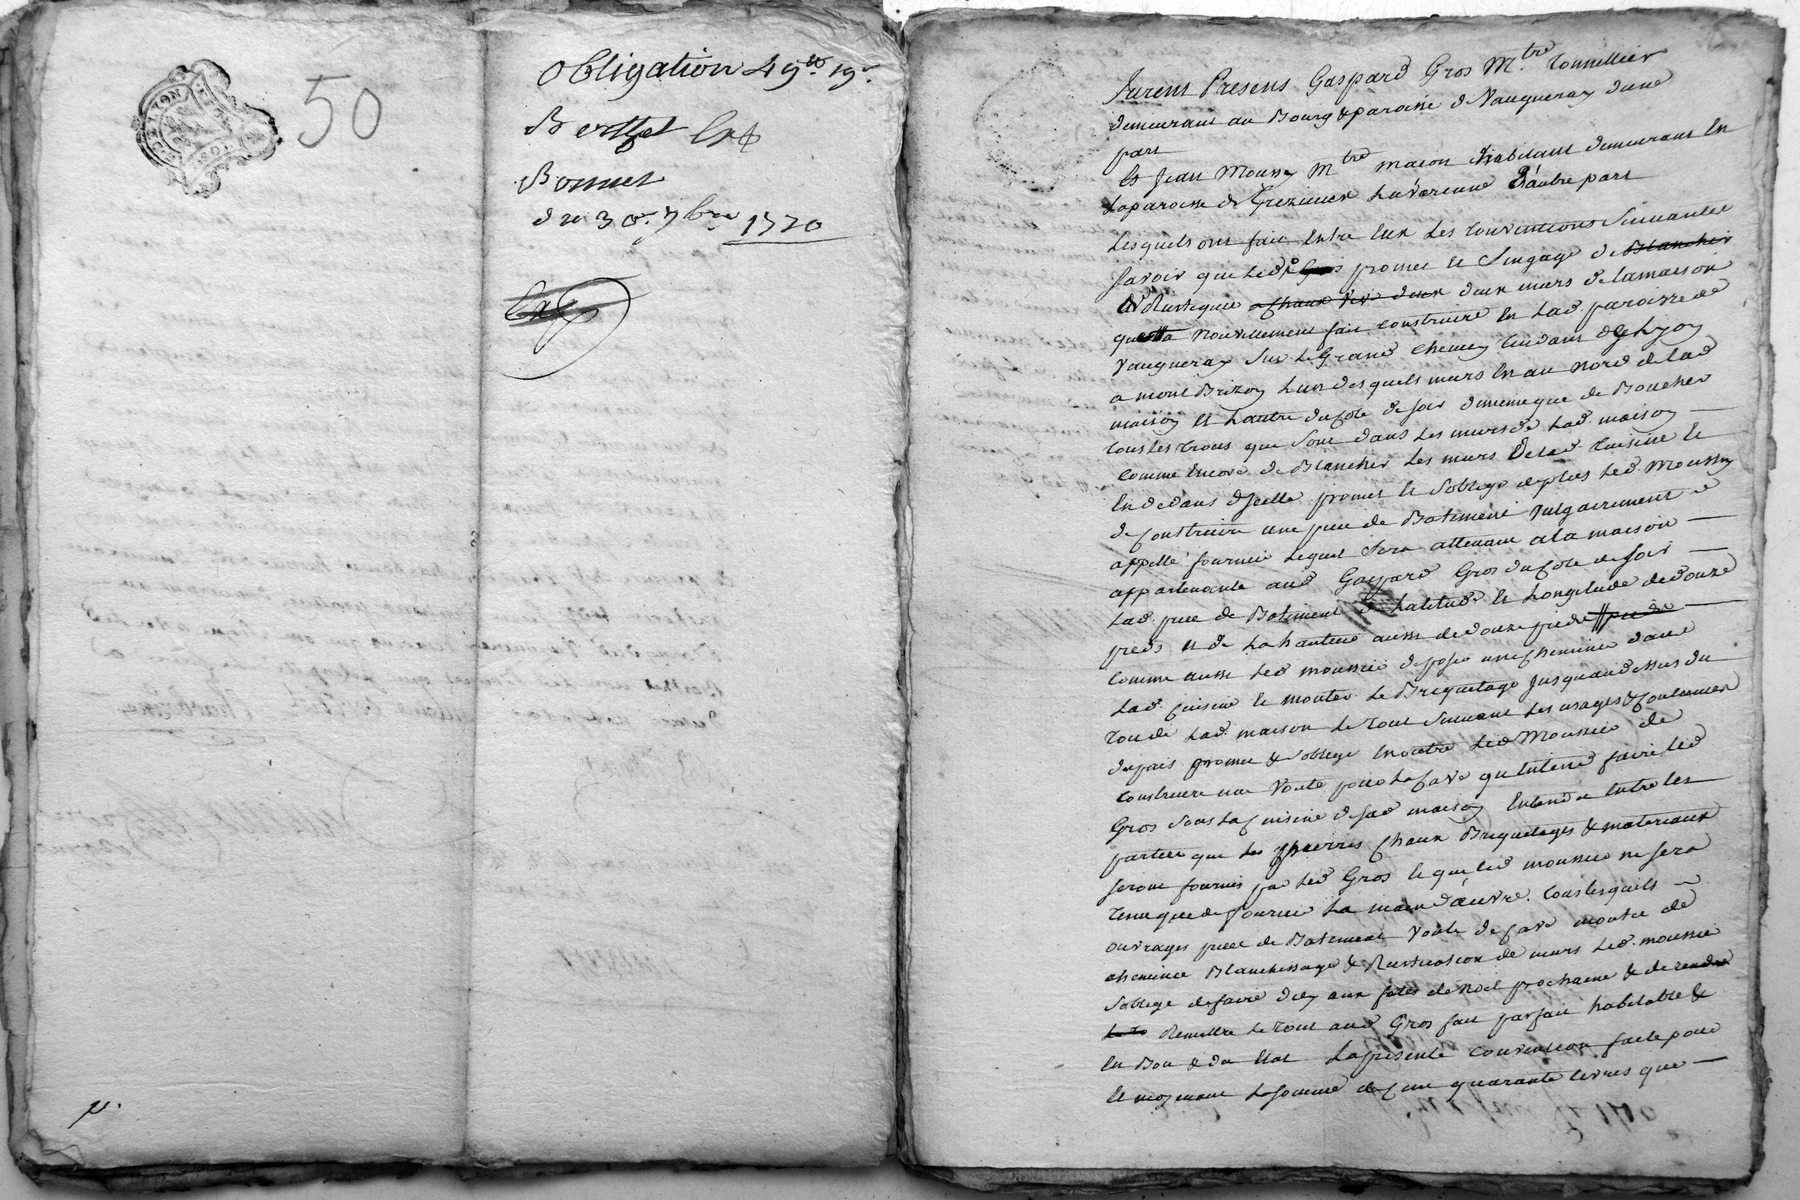 50
Obligation 49 lt 19 s
Berthet
Bonnet
du 30e 7bre 1770
Furent Presens Gaspard Gros Mtre Tonnellier
demeurant au Bourg & paroisse de Vaugneray dune
part
Et Jean Moussy Mtre macon habitant demeurant En
Laparoisse de Grezieux Lavarenne D'autre part
Lesquels ont fait Entre Eux Les Conventions Suivantes
Savoir que Led. promet et Sengage de Blanchir
Rustiquer a Chaux vive deux deux murs de lamaison
nouvellement fait construire En Lad. paroisse de
Vaugneray Sur Le Grand Chemin tendant de Lyon
a mont Brizon Lun desquels murs En au Nord de lad
maison et Lautre du Cote de soir dememe que de Boucher
tous les trous que Sont dans Les murs de Lad. maison
Comme Encore de Blancher Les murs de lad. Cuisine et
En dedans dycelle promet et Soblige de plus Led. Moussy
de Construire une piece de Batiment Vulgairement
appellé fournier Lequel Sera attenant a la maison
appartenante aud Gaspard Gros du Cote de soir
Lad. piece de Batiment Latitude et Longitude de douze
pieds et de La hauteur aussi de douze pieds
Comme aussi Led moussier de poser une Cheminée dans
Lad. Cuisine et monter Le Briquetage Jusquau dessus du
Toit de Lad. maison Le tout Suivant Les usages & Coutumes
du pais promet & Soblige En outre Led Moussier de
Construire une Voute pour La Cave qu'Entend faire led
Gros Sous La Cuisine de Sad maison Entendu Entre Les
parties que Les pierres Chaux Briquetages & materiaux
seront fournis par Led Gros et que led moussier ne sera
tenu que de fournir La main d'œuvre. Tous lesquels
ouvrages piece de Batiment Voute de Cave monter de
cheminée Blanchissage & Rustication de murs Led. moussier
Soblige de faire d'icy aux fetes de Noel prochaine & de rendre
Remettre Le tout aud Gros fait parfait habitable &
En Bon & du Etat La presente Convention faite pour
et moyenant La somme de Cent quarante livres que